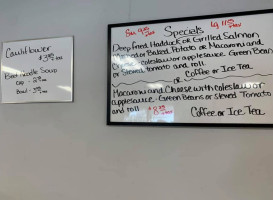 Cauliflower
Beef Noodle Soup
Cup
Bowl
Specials
Deep Fried Haddock or Grilled Salmon
Baked Potato or Macaroni and
Cheese coleslaw or applesauce Green Beans
or Stewed tomato and roll.
Coffee or Ice Tea
or
Macaroni and Cheese with coleslaw or
applesauce. Green Beans or Stewed Tomato
and roll
Coffee or Ice Tea